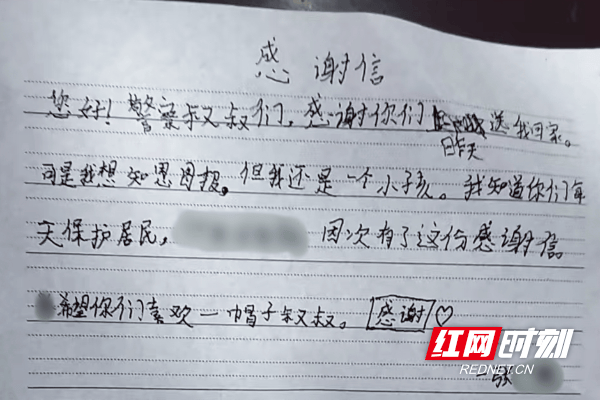 感谢信
您好！警察叔叔们，感谢你们送我回家。
昨天
可是我想知恩图报。但我还是一个小孩。我知道你们每
天保护居民，因次有了这份感谢信
希望你们喜欢一帽子叔叔。感谢♡
一张
红网时刻
REDNET.CN